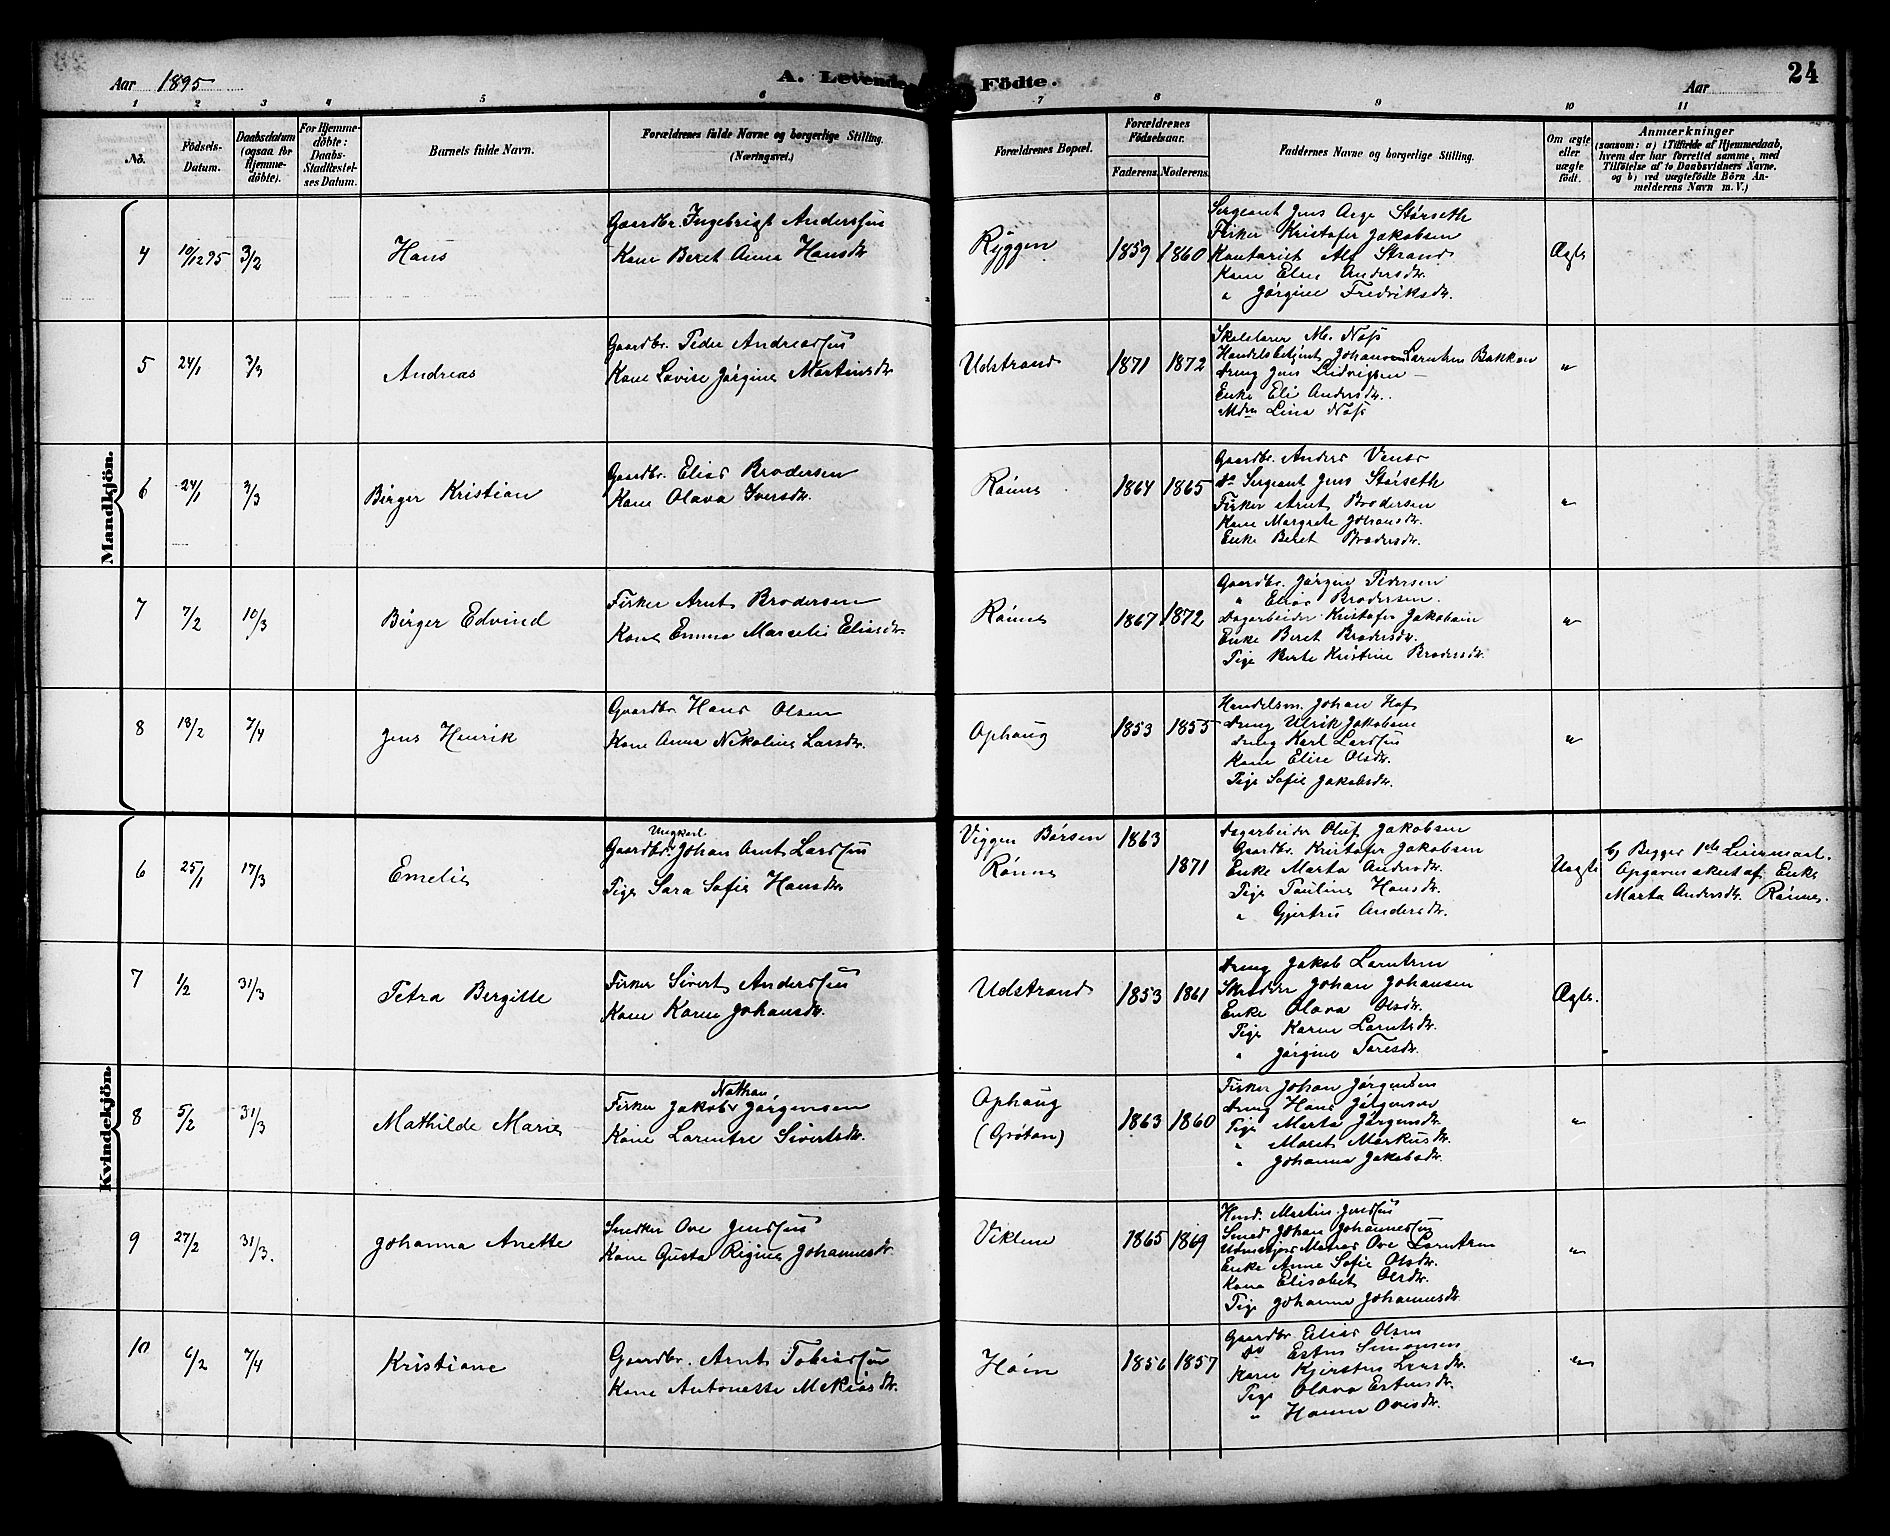 24
Aar 1895
A. Levende Födte.
Aar
1 2 3 4 5 6 7 8 9 10 11
No.
Födsels-Datum.
Daabsdatum (ogsaa for Hjemme-döbte).
For Hjemme-döbte: Daabs-Stadfæstel-ses Datum.
Barnets fulde Navn.
Forældrenes fulde Navne og borgerlige Stilling.
(Næringsvei.)
Forældrenes Bopæl.
Forældrenes Födselsaar.
Faderens. Moderens.
Faddernes Navne og borgerlige Stilling.
Om ægte eller uægte født.
Anmærkninger
(saasom: a) i Tilfælde af Hjemmedaab,
hvem der har forrettet samme, med
Tilföielse af to Daabsvidners Navne.
og b) ved uægtefödte Börn An-
melderens Navn m. V.)
Mandkjön.
4 10/12 95 3/2 Hans
Gaardbr. Ingebrigt Anderssen
Kone Beret Anna Hansdr.
Ryggen 1859 1860
Sergeant Jens Aage Størseth
Fisker Kristofer Jakobsen
Kontorist Alf Strand
Kone Elen Andersdr.
" Jørgine Fredriksdr.
Ægte
5 24/1 3/3 Andreas
Gaardbr. Peder Andreassen
Kone Lovise Jørgine Martinsdr.
Udstrand 1871 1872
Skolelærer M. Næss
Handelsbetjent Johan Larntsen Bakken
Dreng Jens Ludvigsen
Enke Eli Andersdr.
Mdm Lina Næss
"
6 24/1 3/3 Birger Kristian
Gaardbr. Elias Brodersen
Kone Olava Iversdr.
Rønne 1864 1865
Gaardbr. Anders Venes
Do Sergeant Jens Størseth
Fisker Arnt Brodersen
Kone Margrete Johansdr.
Enke Beret Brodersdr.
"
7 7/2 10/3 Birger Edvind
Fisker Arnt Brodersen
Kone Emma Marselie Eliasdr.
Rønne 1867 1872
Gaardbr. Jørgen Pedersen
" Elias Brodersen.
Dagarbeider Kristofer Jakobsen
Enke Beret Brodersdr.
Pige Berte Kristine Brodersdr.
"
8 18/2 7/4 Jens Henrik
Gaardbr Hans Olsen
Kone Anna Nikoline Larsdr.
Ophaug 1853 1855
Handelsm. Johan Hof
Dreng Ulrik Jakobsen
Dreng Karl Larssen
Kone Elise Olsdr.
Pige Sofie Jakobsdr.
"
Kvindekjön.
6 25/1 17/3 Emelie
Ungkarl
Gaardbr. Johan Arnt Larssen
Pige Sara Sofie Hansdr
Viggen Børsen 1863
Rønne 1871
Dagarbeider Oluf Jakobsen
Gaardbr. Kristofer Jakobsen
Enke Marta Andersdr.
Pige Pauline Hansdr.
" Gjertru Andersdr.
Uægte
b) Begges 1ste Leiermaal.
Opgaven skeet af: Enke
Marta Andersdr. Rønne.
7 1/2 31/3 Petra Bergitte
Fisker Sivert Anderssen
Kone Karen Johansdr.
Udstrand 1853 1861
Dreng Jakob Larntsen
Skrædder Johan Johansen
Enke Olava Olsdr.
Pige Karen Larntsdr.
" Jørgine Taresdr.
Ægte.
8 5/2 31/3 Mathilde Marie
Nathan
Fisker Jakob Jørgensen
Kone Larntse Sivertsdr.
Ophaug
(Grøtan) 1863 1860
Fisker Johan Jørgensen
Dreng Hans Jørgensen
Pige Marta Jørgensdr.
" Maret Markusdr.
" Johanna Jakobsdr.
"
9 27/2 31/3. Johanna Anette
Snedker Ove Jenssen
Kone Gusta Regine Johannesdr.
Viklem 1865 1869
Hand. Martin Jenssen
Smed Johan Johannessen
Matros Ove Larntsen
Enke Anne Sofie Olsdr.
Kone Elisabet Olsdr.
Pige Johanna Johannesdr.
"
10 6/2 7/4 Kristiane
Gaardbr. Arnt Tobiassen
Kone Antonette Mekiasdr.
Høin 1856 1857
Gaardbr Elias Olsen
Do Esten Simonsen
Kone Kjersten Larsdr.
Pige Olava Estensdr.
" Hanna Ovesdr.
"